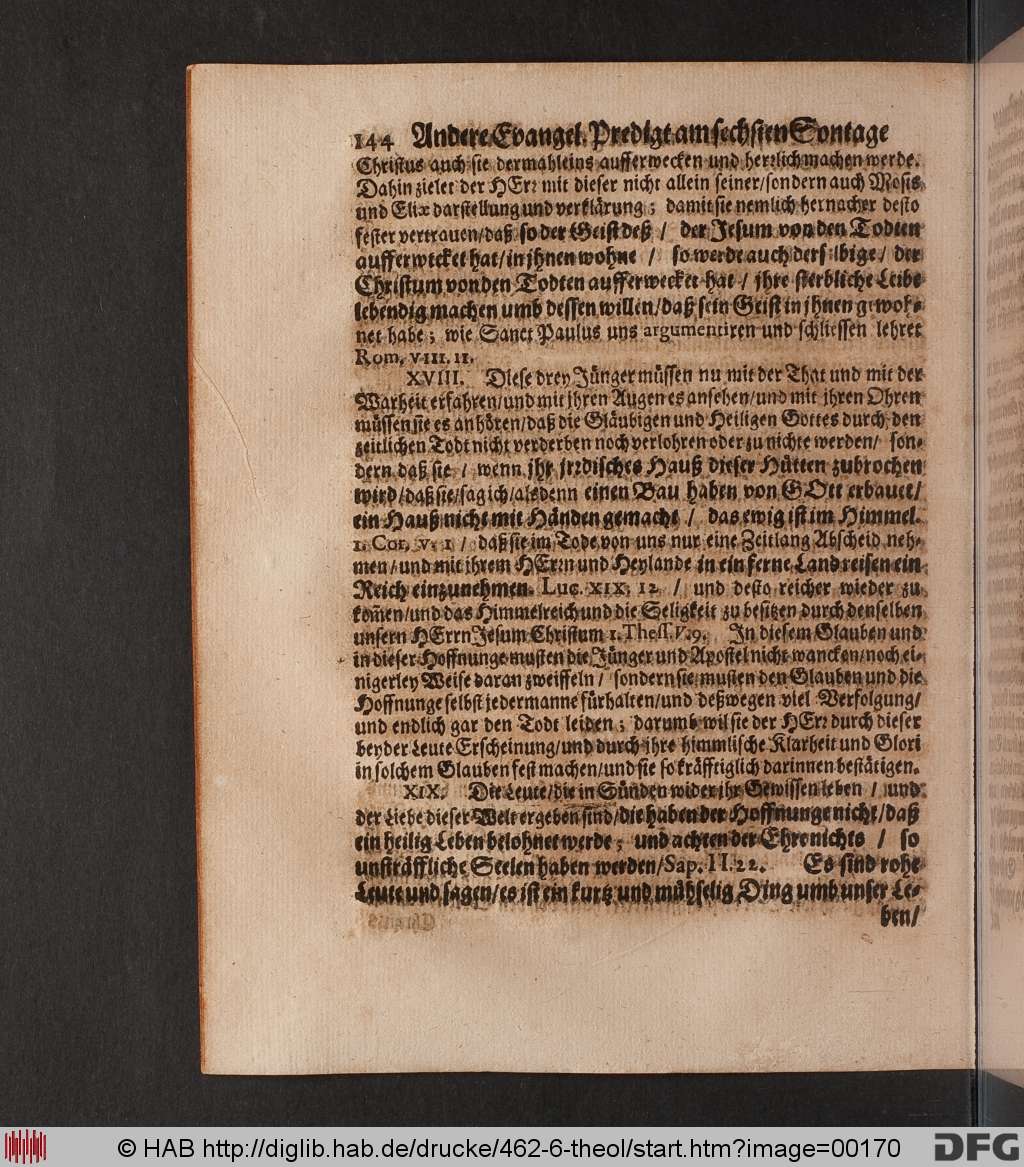 144 Andere Evangel. Predigt am sechsten Sontage
Christus auch sie dermahleins aufferwecken und herrlich machen werde.
Dahin zielet der HErr mit dieser nicht allein seiner/sondern auch Mosis
und Eliæ darstellung und verklärung; damit sie nemlich hernacher desto
fester vertrauen/daß so der Geist deß / der Jesum von den Todten
aufferwecket hat/in jhnen wohne / so werde auch derselbige / der
Christum von den Todten aufferwecket hat / jhre sterbliche Leibe
lebendig machen umb dessen willen/daß sein Geist in jhnen gewoh-
net habe; wie Sanct Paulus uns argumentiren und schliessen lehret
Rom. VIII. 11.
XVIII. Diese drey Jünger müssen nu mit der That und mit der
Warheit erfahren/und mit jhren Augen es ansehen/und mit jhren Ohren
müssen sie es anhören/daß die Gläubigen und Heiligen Gottes durch den
zeitlichen Todt nicht verderben noch verlohren oder zu nichte werden/ son-
dern daß sie / wenn jhr jrrdisches Hauß dieser Hütten zubrochen
wird/daß sie/sag ich/alsdenn einen Bau haben von GOtt erbauet/
ein Hauß nicht mit Händen gemacht / das ewig ist im Himmel.
1. Cor. V. 1 / daß sie im Tode von uns nur eine Zeitlang Abscheid neh-
men/und mit jhrem HErrn und Heylande in ein ferne Land reisen ein
Reich einzunehmen. Luc. XIX. 12 / und desto reicher wieder zu
kom̃en/und das Himmelreich und die Seligkeit zu besitzen durch denselben
unsern HErrn Jesum Christum 1. Thess. V. 9. In diesem Glauben und
in dieser Hoffnunge musten die Jünger und Apostel nicht wancken/noch ei-
nigerley Weise daran zweiffeln / sondern sie musten den Glauben und die
Hoffnunge selbst jedermanne fürhalten/und deßwegen viel Verfolgung/
und endlich gar den Todt leiden; darumb wil sie der HErr durch dieser
beyder Leute Erscheinung/und durch ihre himmlische Klarheit und Glori
in solchem Glauben fest machen/und sie so kräfftiglich darinnen bestätigen.
XIX. Die Leute/die in Sünden wider jhr Gewissen leben / und
der Liebe dieser Welt ergeben sind/die haben der Hoffnunge nicht/daß
ein heilig Leben belohnet werde; und achten der Ehre nichts / so
unsträffliche Seelen haben werden/Sap. II. 22. Es sind rohe
Leute und sagen/es ist ein kurtz und mühselig Ding umb unser Le-
ben/
© HAB http://diglib.hab.de/drucke/462-6-theol/start.htm?image=00170
DFG